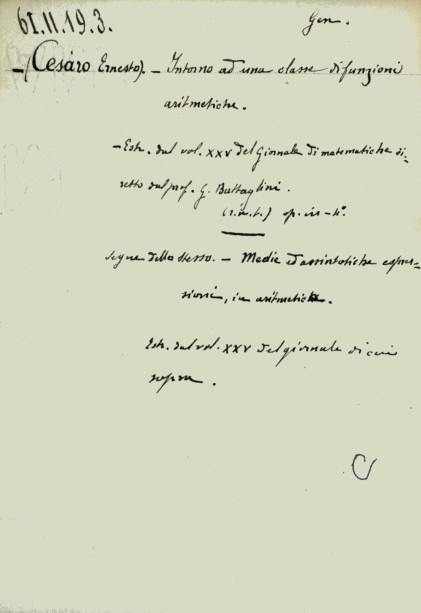 61.11.19.3.
Gen.
- (Cesàro Ernesto). - Intorno ad una classe di funzioni
aritmetiche.
- Estr. dal vol. XXV del Giornale di matematiche di-
retto dal prof. G. Battaglini.
(s.n.t.) op. in-4°.
segue dello stesso. - Medie ed assintotiche espres-
sioni, in aritmetica.
Estr. dal vol. XXV del giornale di cui
sopra.
C